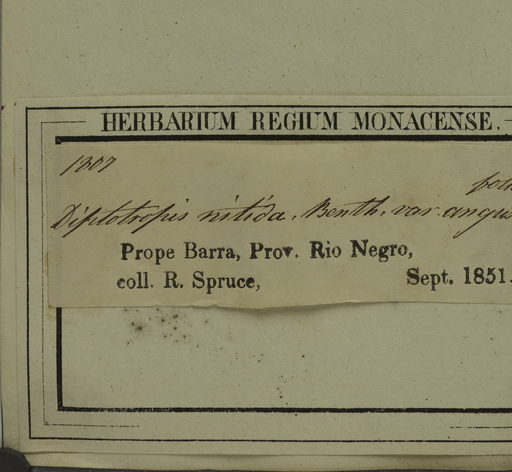 HERBARIUM REGIUM MONACENSE.
1807
Diplotropis nitida, Benth, var. angus
Prope Barra, Prov. Rio Negro,
coll. R. Spruce, Sept. 1851.